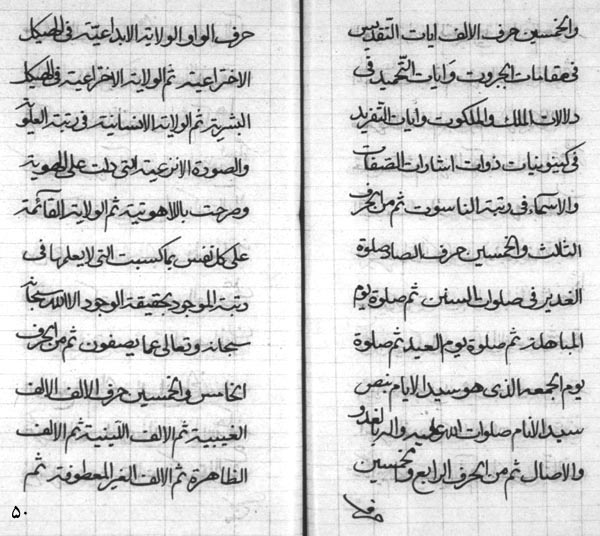 والخمسین حرف الالف ایات التقدیس
فی مقامات الجبروت وَایات التّحمید فی
دلالات الملك والملکوت وایات التفرید
فی کینوینیات ذوات اشارات الصفات
والاسمآء فی رتبة الناسوت ثم من الحرف
الثالث والخمسین حرف الصاد صلوة
الغدیر فی صلوات السنن ثم صلوة یوم
المباهلة ثم صلوة یوم العید ثم صلوة
یوم الجمعه الذی هو سید الایام بنص
سید الانام صلوات الله علیه واله بالغدو
والاصال ثم من الحرف الرابع والخمسین
حرف الواو الولایة الابداعیّة فی الهیکل
الاختراعیة ثم الولایة الاختراعیة فی الهیکل
البشریة ثم الولایة الانسانیة فی رتبة العلویّ
والصورة الانزعیة التی دلت علی الهویة
وصرحت باللاهوتیة ثم الولایة القآئمة
علی کل نفس بما کسبت التی لا یعلمها فی
رتبة الموجود بحقیقة الوجود الا الله سبحانه
سبحانه وتعالی عما یصفون ثم من الحرف
الخامس والخمسین حرف الالف الالف
الغیبیة ثم الالف اللینیة ثم الالف
الظاهرة ثم الالف الغیر المعطوفة ثم
۵۰